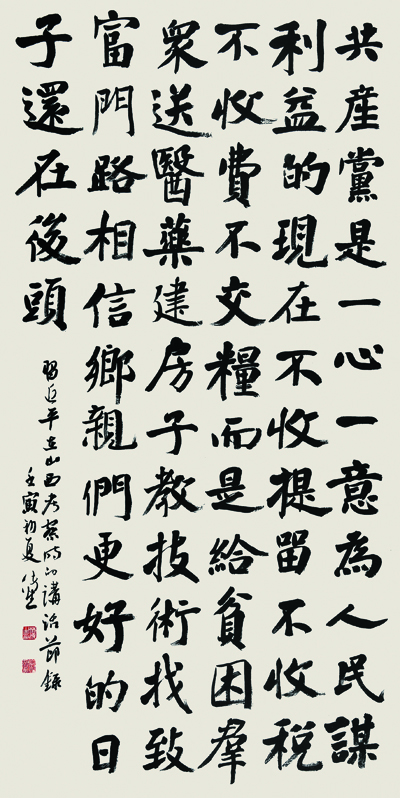 共產黨是一心一意為人民謀
利益的現在不收提留不收稅
不收費不交糧而是給貧困羣
衆送醫藥建房子教技術找致
富門路相信鄉親們更好的日
子還在後頭
習近平在山西考察時的講話節錄
壬寅初夏